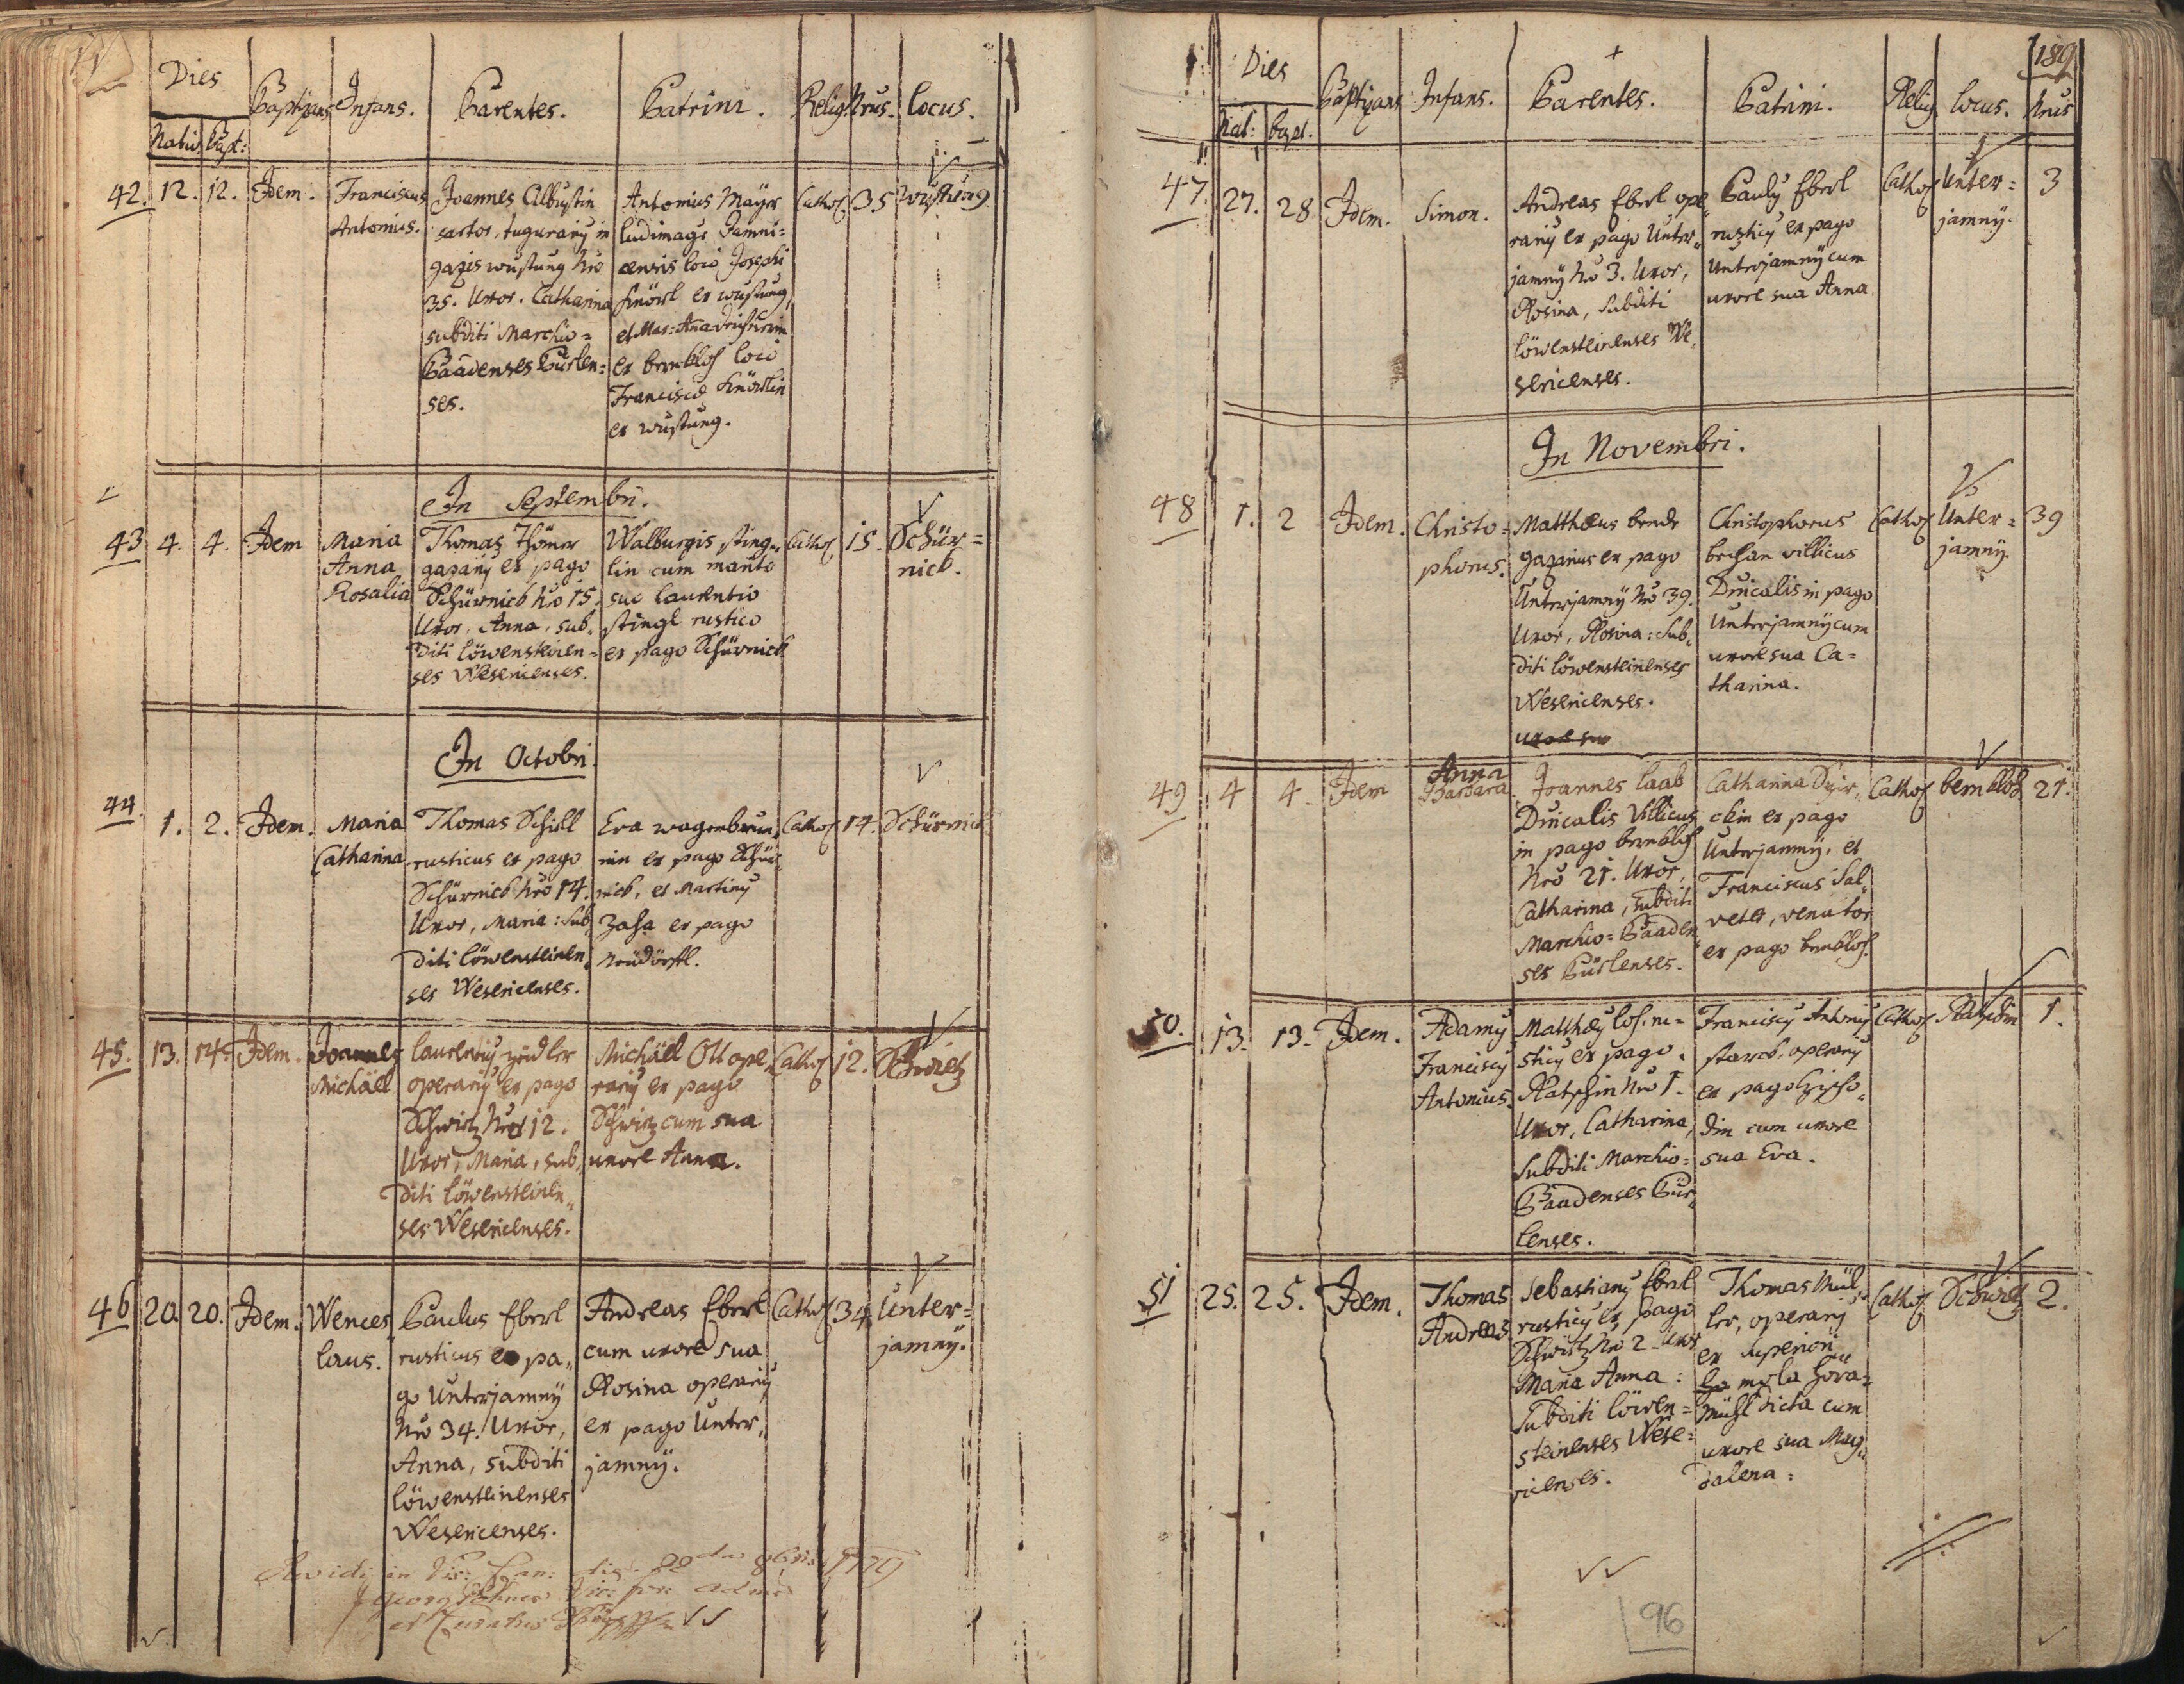 Dies
Baptizans Infans. Parentes. Patrini. Relig. Nrus. Locus.
Nativ. Bapt:
42. 12. 12. Idem. Franciscus Antonius.
Joannes Albustin
sartor, tugurarij in
gazis wustung Nro
35. Uxor. Catharina
subditi Marchio=
Baadenses Purlen=
ses.
Antonius Mayer
ludimagr Jamni=
censis loco Josephi
Knörl ex wustung,
et Mar: Anna
ex bernklos loco
Franciscae Knörlin
ex wustung.
Cathol 35 wustung
In Septembri.
43 4. 4. Idem Maria
Anna
Rosalia
Thomas Thömer
gazarij ex pago
Schürnick Nro 15.
Uxor, Anna, sub,,
diti löwensteinen=
ses Weserienses.
Walburgis sting,,
lin cum marito
suo laurentio
stingl rustico
ex pago Schürnick
Cathol 15. Schür=
nick.
In Octobri.
44. 1. 2. Idem. Maria
Catharina.
Thomas Schill
rusticus ex pago
Schürnick Nro 14.
Uxor, Maria: Sub,,
diti löwensteinen,,
ses Weserienses.
Eva wagenbrun,,
nin ex pago Schür,,
nick, et Martinus
Zaha ex pago
Neudörffl.
Cathol 14. Schürnick
45. 13. 14. Idem. Joannes
Michäel
laurentij zeidler
operarij ex pago
Schwitz Nro 12.
Uxor, Maria, sub,,
diti löwensteinen,,
ses Weserienses.
Michäel Ott ope,,
rarij ex pago
Schwitz cum sua
uxore Anna.
Cathol 12. Schwitz
46 20. 20. Idem. Wences
laus.
Paulus Eberl
rusticus ex pa,,
go Unterjamnÿ
Nro 34. Uxor,
Anna, subditi
löwensteinenses
Weserienses.
Andreas Eberl
cum uxore sua
Rosina operarij
ex pago Unter,,
jamnÿ.
Cathol 34. Unter=
jamnÿ.
189
Dies
Nat: bapt.
Baptizans Infans. Parentes. Patrini. Relig. locus. Nrus
47. 27. 28. Idem. Simon.
Andreas Eberl ope,,
rarij ex pago Unter,,
jamnÿ Nro 3. Uxor,
Rosina, Subditi
löwensteinenses We,,
serienses.
Paulij Eberl
rusticij ex pago
Unterjamnÿ cum
uxore sua Anna
Cathol Unter=
jamnÿ. 3
In Novembri.
48 1. 2 Idem. Christo=
phorus.
Matthæus bender
gazarius ex pago
Unterjamnÿ Nro 39.
Uxor, Rosina: Sub,,
diti löwensteinenses
Weserienses.
Christophorus
bechan villicus
Dnicalis in pago
Unterjamnÿ cum
uxore sua Ca=
tharina.
Cathol Unter=
jamnÿ. 39
49 4 4. Idem Anna
Barbara.
Joannes laab
Dnicalis Villicus
in pago bernklos
Nro 21. Uxor,
Catharina, subditi
Marchio=Baaden,,
ses Purlenses.
Catharina
ckin ex pago
Unterjamnÿ, et
Franciscus Sal,,
vett, venator
ex pago bernklos.
Cathol bernklos 21.
50. 13. 13. Idem. Adamij
Franciscij
Antonius.
Matthæij Los. ru=
sticij ex pago
Ratschin Nro 1.
Uxor, Catharina,
Subditi Marchio=
Baadenses Pur,,
lenses.
Franciscij Antonij
starck, operarij
ex pago
din cum uxore
sua Eva.
Cathol Ratschin 1.
51 25. 25. Idem. Thomas
Andreas.
Sebastianij Eberl
rusticij ex pago
Schwitz Nro 2 Uxor
Maria Anna:
Subditi löwen=
steinenses Wese=
rienses.
Thomas Mül,,
ler, operarij
ex superiori
mola hora=
mühl dicta cum
uxore sua Mag,,
dalena:
Cathol Schwitz 2.
96